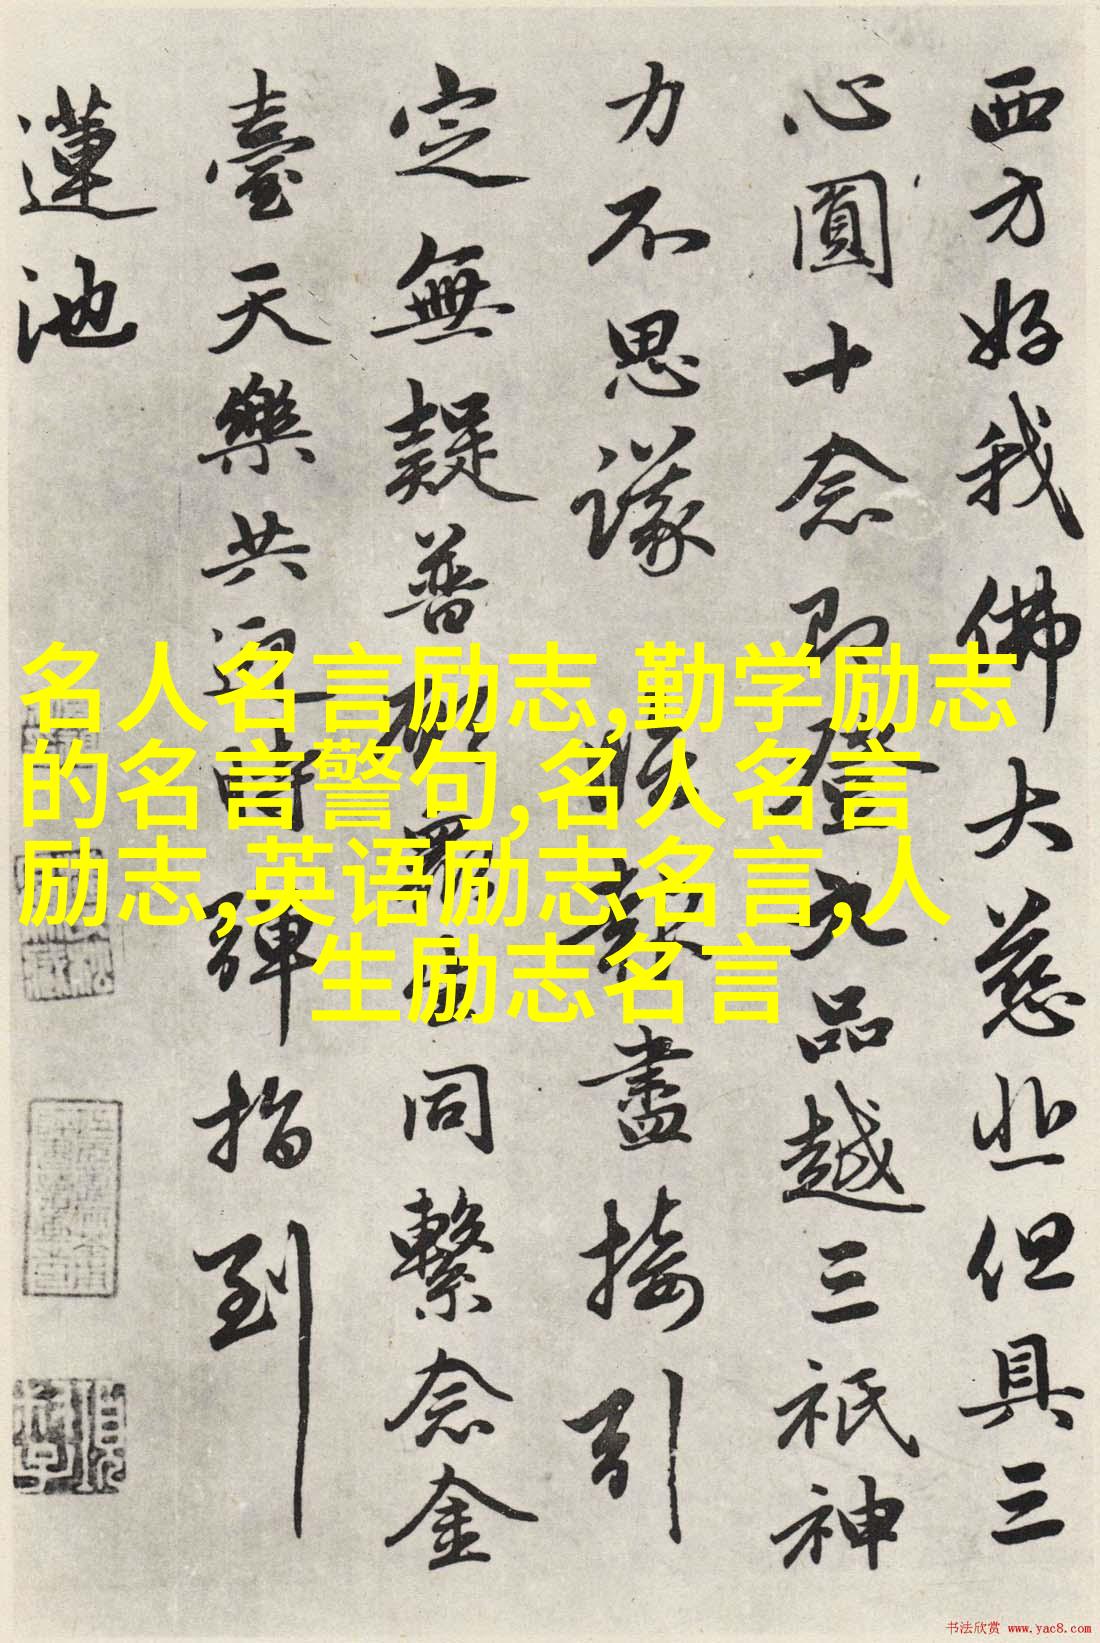 西方好我佛大慈悲但具三
心圓十念即登九品越三祇神
力不思議報盡接引
定無疑普同繫念金
臺天樂共迎時彈指到
蓮池
名人名言励志,勤学励志
的名言警句,名人名言
励志,英语励志名言,人
生励志名言
书法欣赏 www.yac8.com